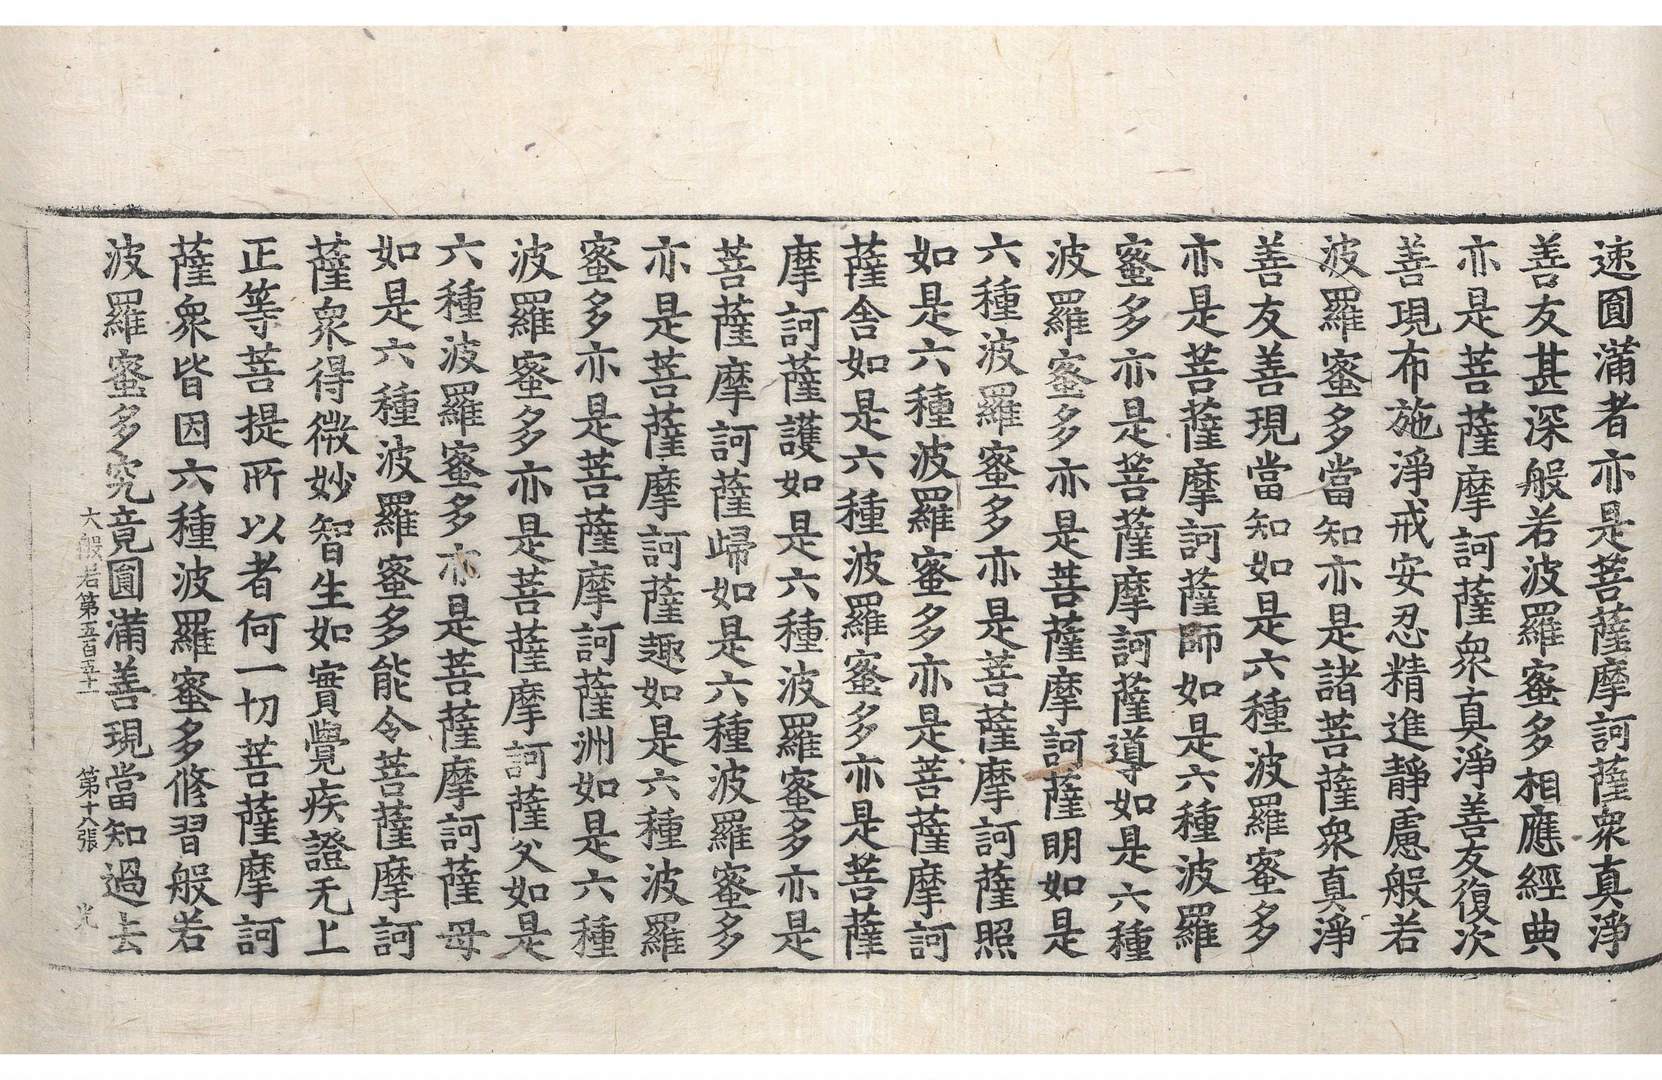 速圓滿者亦是菩薩摩訶薩衆真淨
善友甚深般若波羅蜜多相應經典
亦是菩薩摩訶薩衆真淨善友復次
善現布施淨戒安忍精進靜慮般若
波羅蜜多當知亦是諸菩薩衆真淨
善友善現當知如是六種波羅蜜多
亦是菩薩摩訶薩師如是六種波羅
蜜多亦是菩薩摩訶薩導如是六種
波羅蜜多亦是菩薩摩訶薩明如是
六種波羅蜜多亦是菩薩摩訶薩照
如是六種波羅蜜多亦是菩薩摩訶
薩舍如是六種波羅蜜多亦是菩薩
摩訶薩護如是六種波羅蜜多亦是
菩薩摩訶薩歸如是六種波羅蜜多
亦是菩薩摩訶薩趣如是六種波羅
蜜多亦是菩薩摩訶薩洲如是六種
波羅蜜多亦是菩薩摩訶薩父如是
六種波羅蜜多亦是菩薩摩訶薩母
如是六種波羅蜜多能令菩薩摩訶
薩衆得微妙智生如實覺疾證无上
正等菩提所以者何一切菩薩摩訶
薩衆皆因六種波羅蜜多修習般若
波羅蜜多究竟圓滿善現當知過去
大般若第五百五十一 第十八張 光